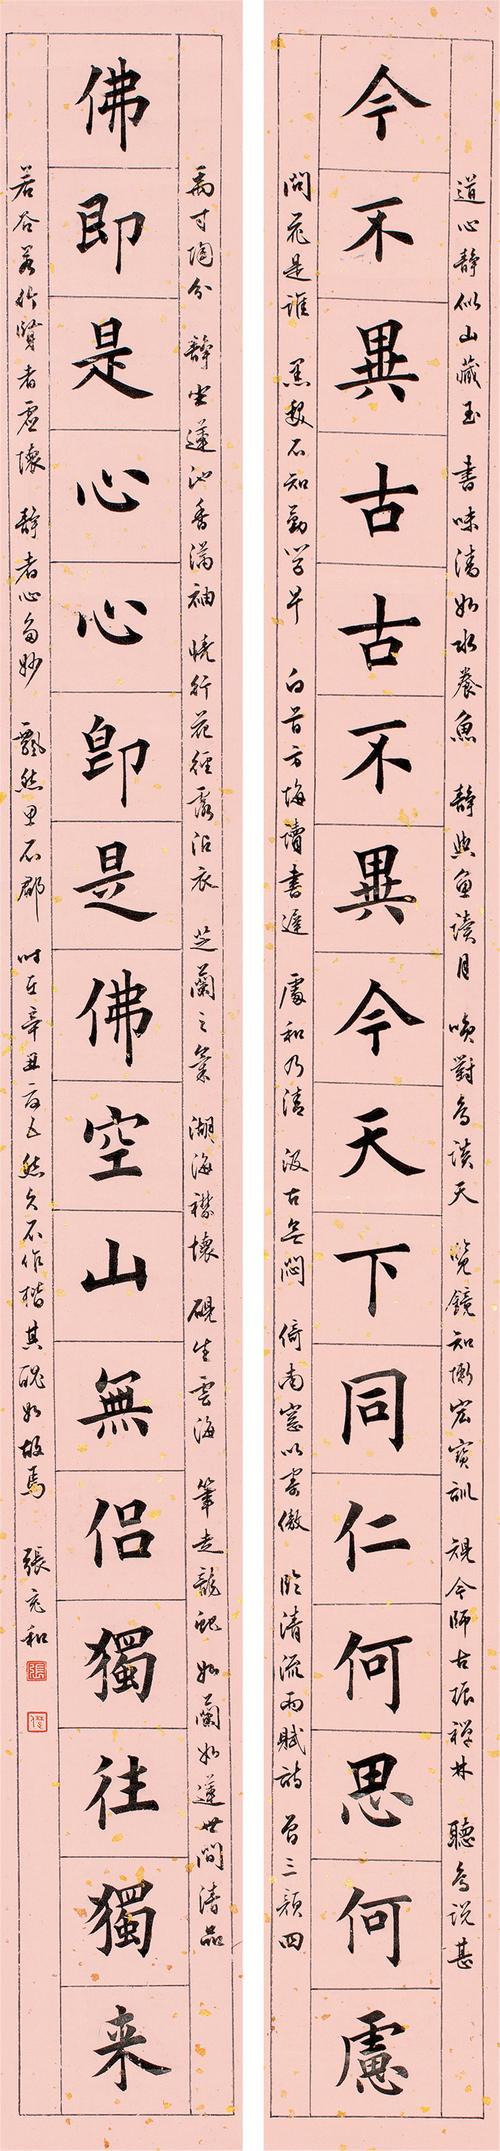 道心静似山藏玉 書味清如水養魚 静與魚讀月 咲對鳥談天 覽鏡知慚宏寶訓 視今師古振禪林 聽鳥説甚
今不異古古不異今天下同仁何思何慮
問花是誰 黑髮不知勤學早 白首方悔讀書遲 處和乃清 汲古無悶 倚南窗以寄傲 臨清流而賦詩 曾三顏四
禹寸陶分 静坐蓮池香滿袖 曉行花徑露沾衣 芝蘭之氣 湖海襟懷 硯生雲海 筆走龍蛇 如蘭如蓮世間清品
佛即是心心即是佛空山無侶獨往獨来
若谷若竹賢者虛懷 静者心多妙 飄然思不群 时在辛丑 然久不作楷其醜如故焉 張充和